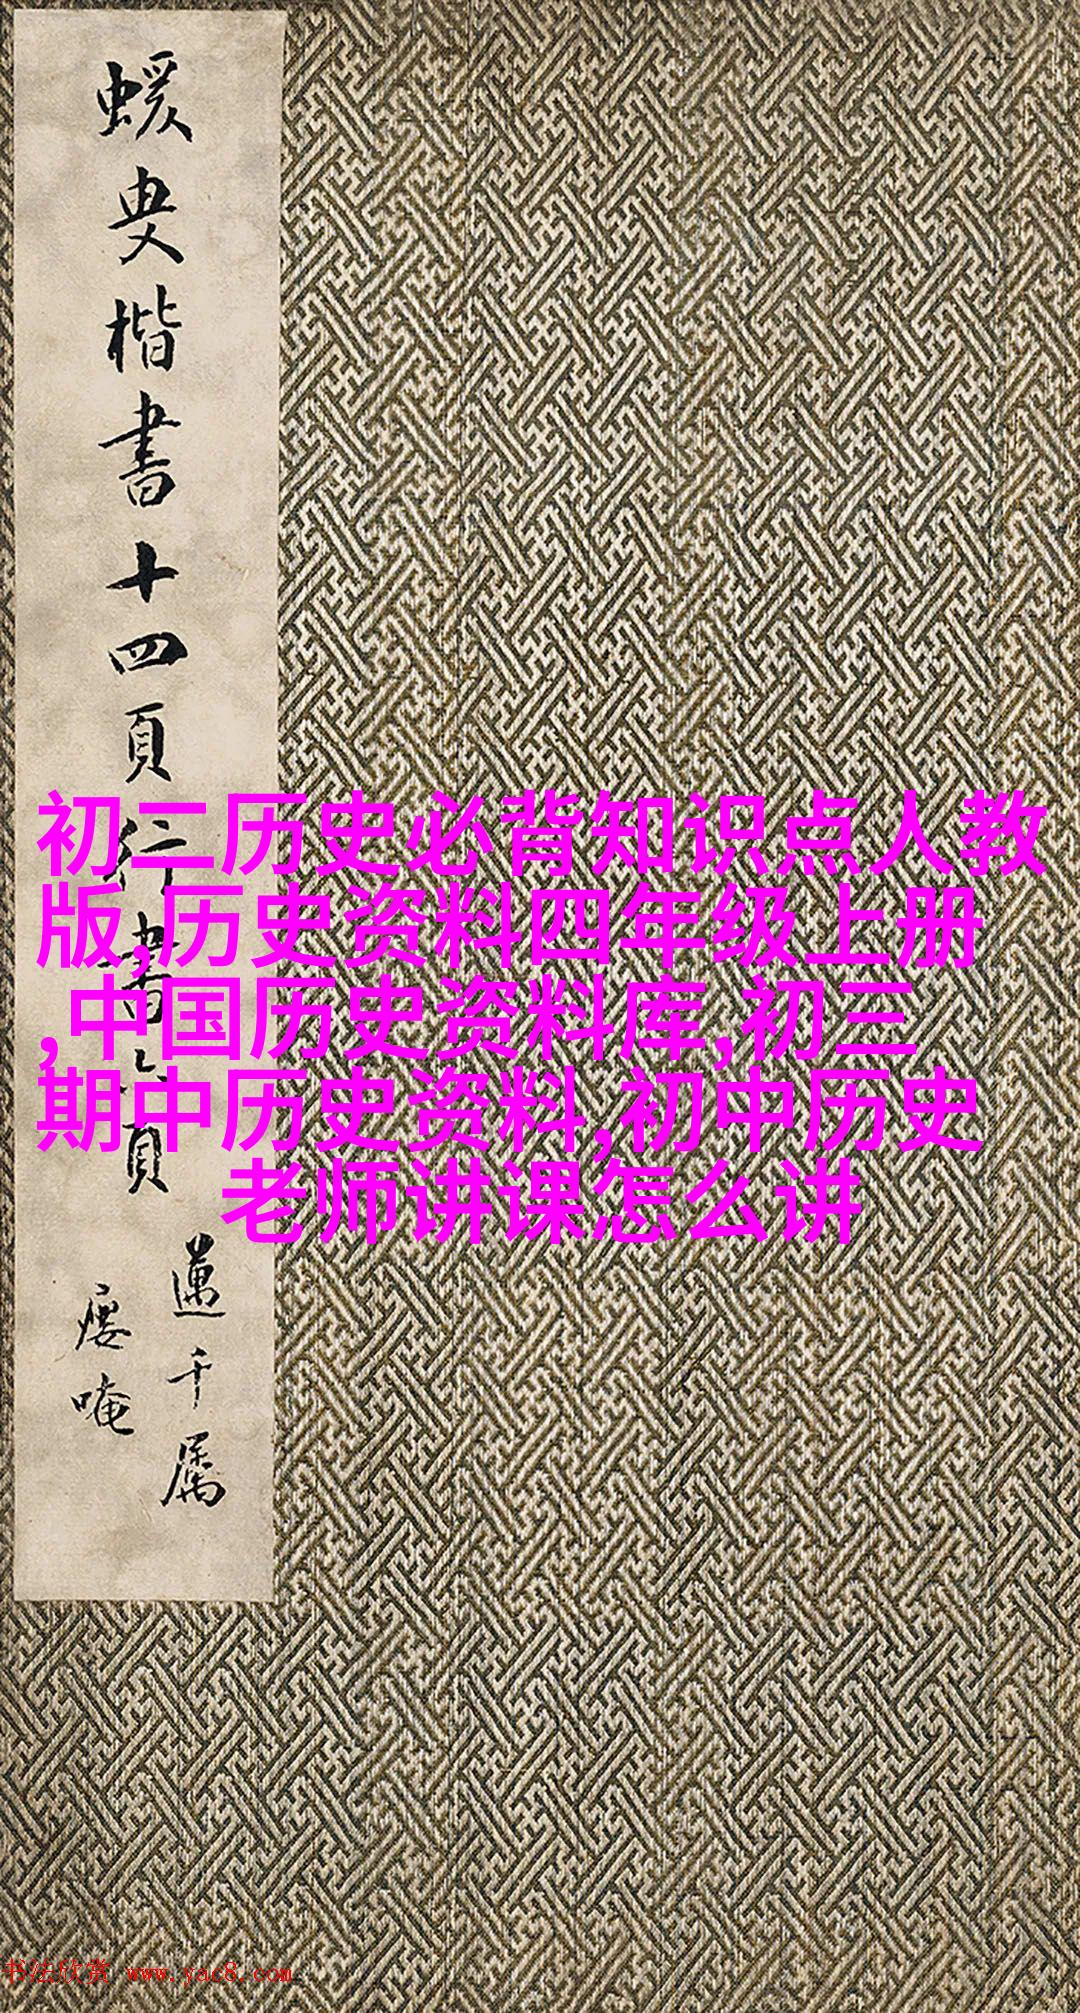 蝯叟楷書十四頁行書六頁
蘧千属
瘿唵
初二历史必背知识点人教
版,历史资料四年级上册
,中国历史资料库,初三
期中历史资料,初中历史
老师讲课怎么讲
书法欣赏 www.yac8.com